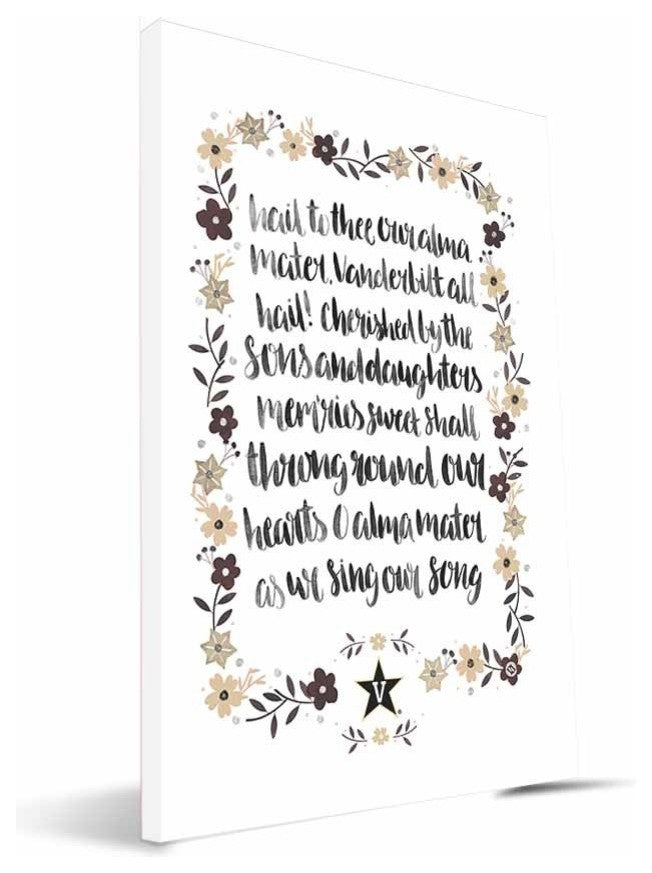 hail to thee our alma
mater, Vanderbilt all
hail! Cherished by the
Sons and daughters
mem'ries sweet shall
throng round our
hearts O alma mater
as we sing our song
V